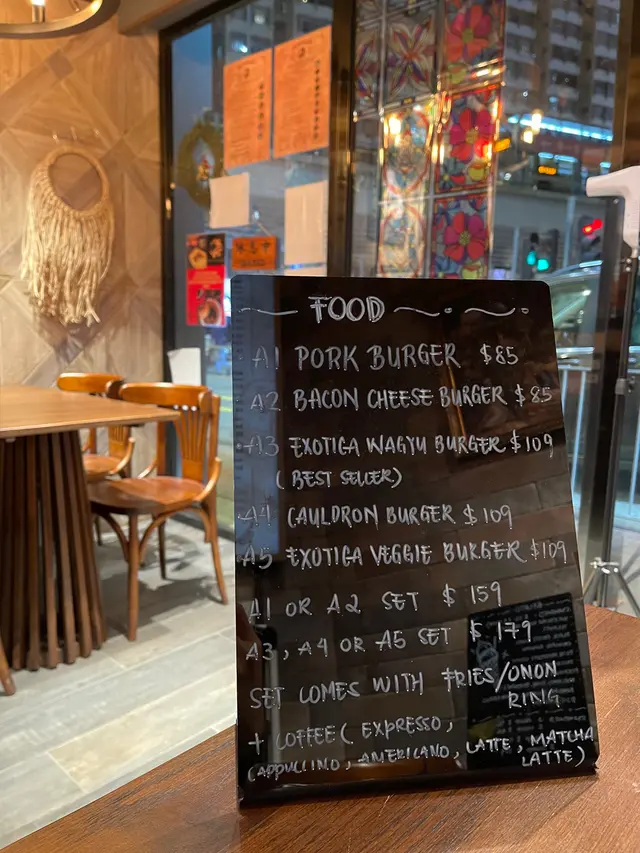 FOOD
A1 PORK BURGER $85
A2 BACON CHEESE BURGER $85
A3 EXOTIGA WAGYU BURGER $109
(BEST SELLER)
A4 CAULDRON BURGER $109
A5 EXOTIGA VEGGIE BURGER $109
A1 OR A2 SET $159
A3, A4 OR A5 SET $179
SET COMES WITH FRIES/ONON
RING
+ COFFEE( EXPRESSO,
CAPPUCCINO, AMERICANO, LATTE, MATCHA
LATTE)